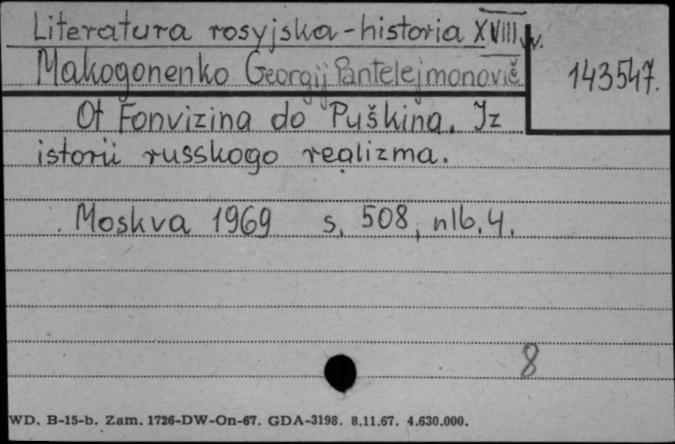 Literatura rosyjska - historia XVIII w.
Makogonenko Georgij Pantelejmonovič
143547.
Ot Fonvizina do Puškina. Iz
istorii russkogo realizma.
Moskva 1969 s. 508, nlb. 4.
8
WD. B-15-b. Zam. 1726-DW-On-67. GDA-3198. 8.11.67. 4.630.000.